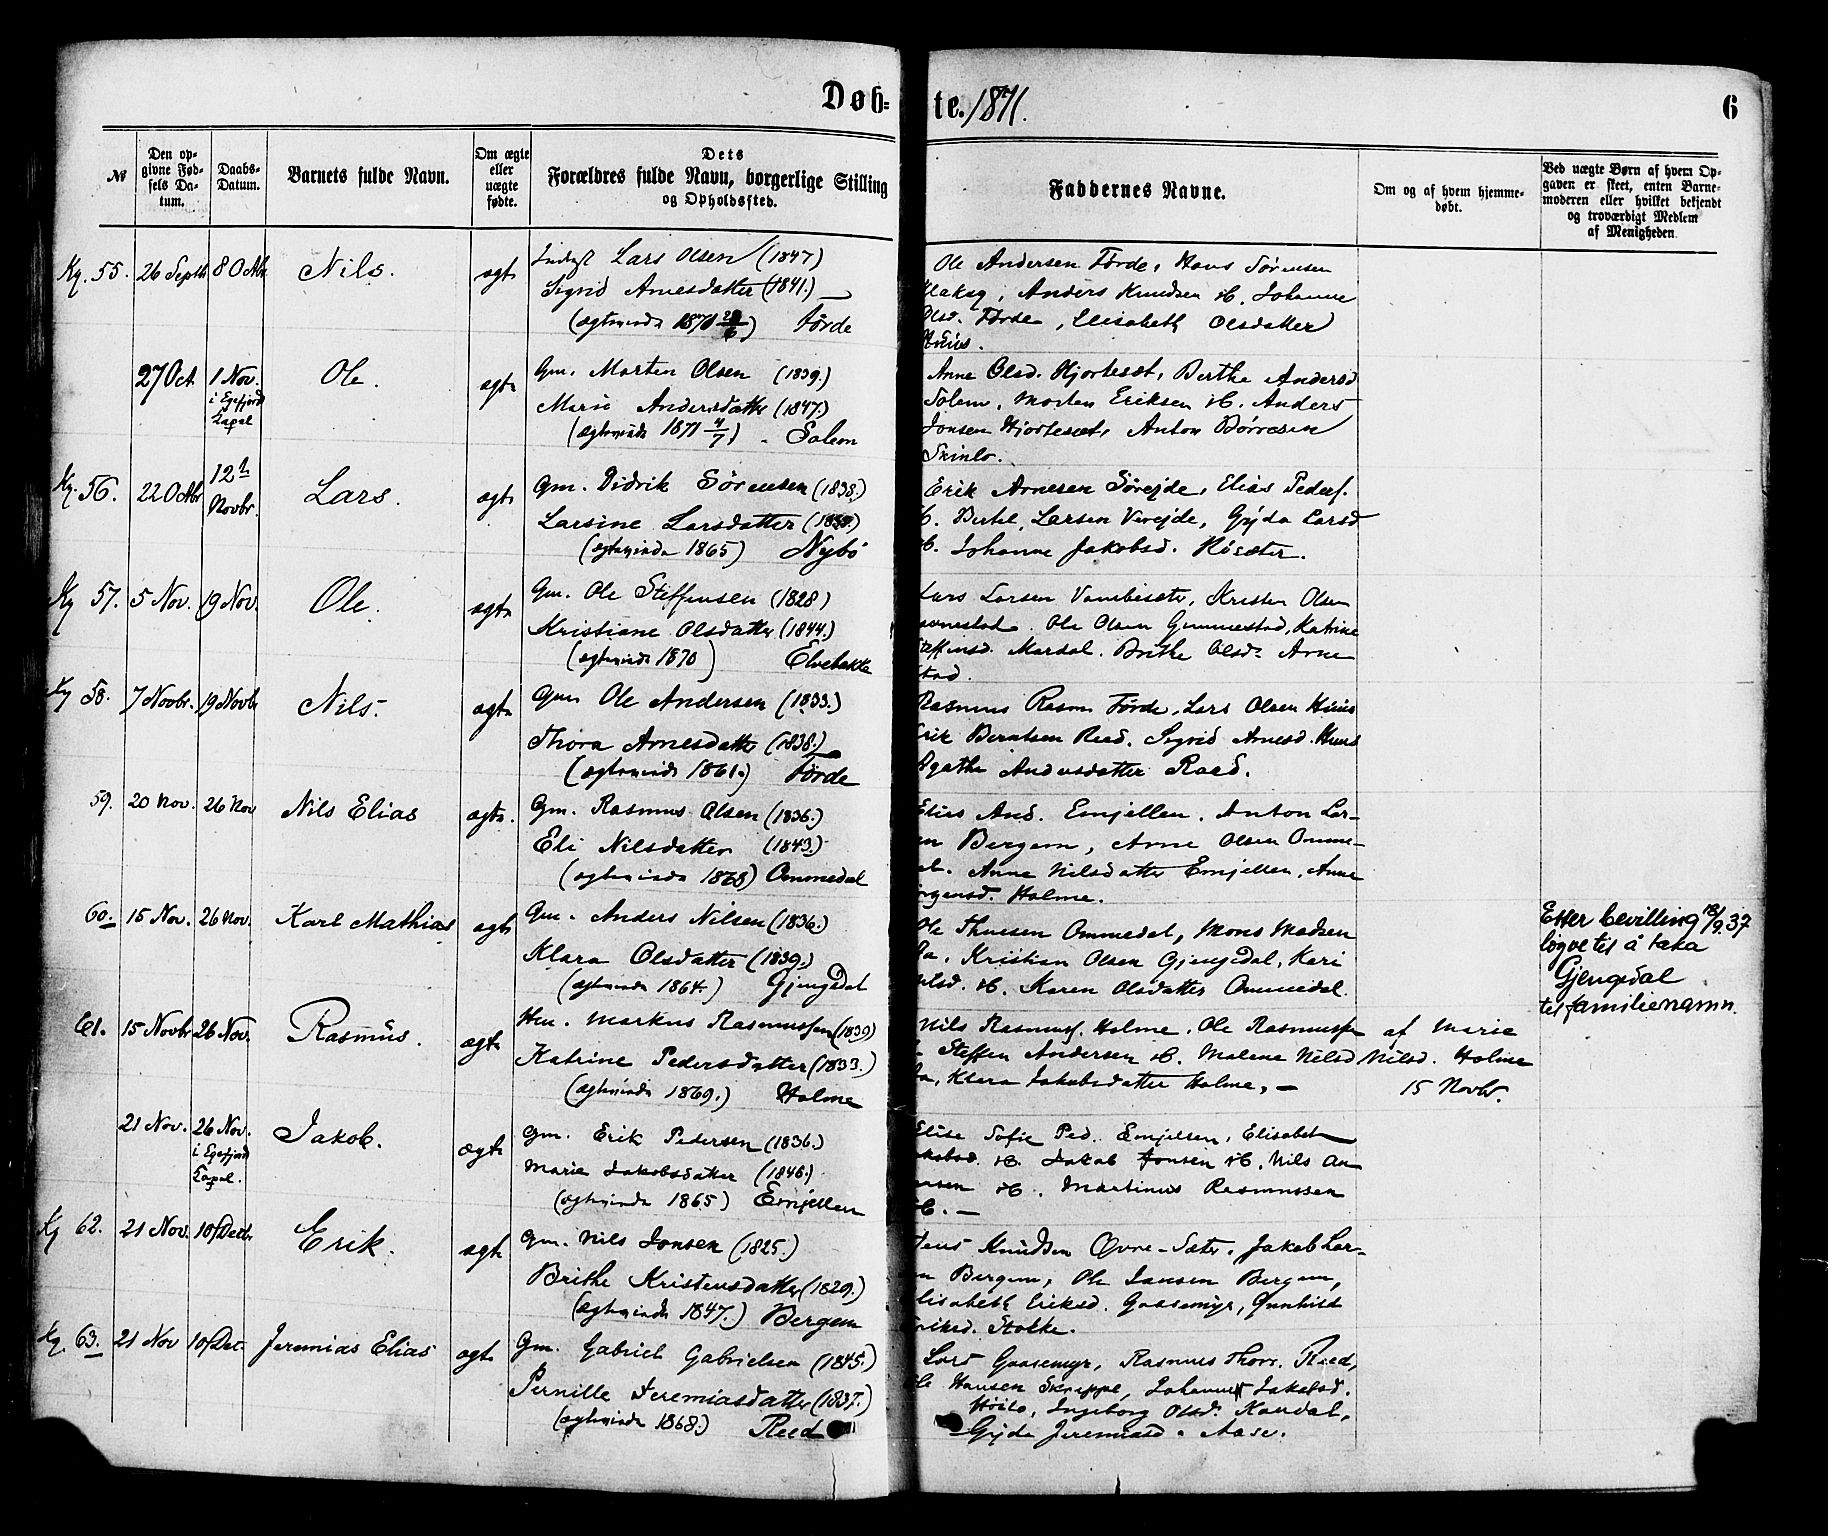 Døb-
te. 1871.
6
№
Den op-
givne Fød-
sels Da-
tum.
Daabs-
Datum.
Barnets fulde Navn.
Om ægte
eller
uægte
fødte.
Dets
Forældres fulde Navn, borgerlige Stilling
og Opholdssted.
Faddernes Navne.
Om og af hvem hjemme-
døbt.
Ved uægte Børn af hvem Op-
gaven er skeet, enten Barne-
moderen eller hvilket bekjendt
og troværdigt Medlem
af Menigheden.
Kg. 55. 26 Septb 8 Oktbr Nils. ægte
Lars Olsen (1847)
Sigrid Arnesdatter (1841.)
(ægteviede 1871) Førde
Ole Andersen Førde, Hans Sørensen
Anders Knudsen ibd. Johanne
Olsd. Førde, Elisabeth Olsdatter
Huus.
27 Oct. 1 Nov.
i Egefjord
Kapel
Ole. ægte
Gm. Morten Olsen (1839.)
Marie Andersdatter (1847.)
(ægteviede 1871 4/7) Solem
Anne Olsd. Hjortesæt, Berthe Andersd
Solem, Morten Eriksen ibd. Anders
Jonsen Hjortesæt, Anton Børresen
Kg. 56. 22 Oktbr 12te
Novbr.
Lars. ægte
Gm. Didrik Sørensen (1838.)
Larsine Larsdatter
(ægteviede 1865) Nybø
Erik Arnesen Sørejde, Elias Peders.
ibd. Bertel Larsen Verejde, Gyda Larsd
ibd. Johanne Jakobsd. Risæter.
Kg 57. 5 Nov. 19 Nov. Ole. ægte
Gm. Ole Steffensen (1828)
Kristiane Olsdatter (1844.)
(ægteviede 1870) Elvebakke
Lars Larsen Vambesæter, Kristen Olsen
Ole Olsen Gimmestad, Katrine
Steffensd. Mardal. Brithe Olsdr Arne
stad.
Kg 58. 7 Novbr. 19 Novbr Nils. ægte
Gm Ole Andersen (1833.)
Thora Arnesdatter (1838.)
(ægteviede 1861.) Førde
Rasmus Rasm Førde, Lars Olsen Huus
Erik Berntsen Reed. Sigrid Arnesd. Huus
Agathe Andersdatter Raed.
59. 20 Nov. 26 Nov Nils Elias ægte.
Gm. Rasmus Olsen (1836.)
Eli Nilsdatter (1843.)
(ægteviede 1868) Ommedal
Elias And. Emjellen. Anton Lar-
en Bergem, Arne Olsen Omme-
al. Anne Nilsdatter Emjellen, Anne
Holme.
60. 15 Nov. 26 Nov. Karl Mathias ægte
Gm. Anders Nilsen (1836.)
Klara Olsdatter (1839.)
(ægteviede 1864.) Gjengedal
Ole Thuesen Ommedal, Mons Madsen
Kristian Olsen Gjengedal, Kari
ibd. Karen Olsdatter Ommedal.
Etter bevilling 18/9.37
løyve til å taka
Gjengedal
til familienamn.
61. 15 Novbr 26 Nov. Rasmus. ægte
Hm. Markus Rasmussen (1839)
Katrine Pedersdatter (1833.)
(ægteviede 1869.) Holme
Nils Rasmuss. Holme. Ole Rasmussen
Steffen Andersen ibd. Malene Nilsd
Klara Jakobsdatter Holme, —
af Marie
Nilsd. Holme
15 Novbr.
21 Nov. 26 Nov.
i Egefjord
Kapel.
Jakob. ægte
Gm. Erik Pedersen (1836.)
Marie Jakobsdatter (1846.)
(ægteviede 1865) Emjellen
Elise Sofie Ped. Emjellen, Elisabet
ibd. Jakob Jonsen ibd. Nils An
ibd. Martinus Rasmussen
ibd. —
Kg 62. 21 Nov. 10 Decbr. Erik. ægte
Gm. Nils Jonsen (1825.)
Brithe Kristensdatter (1829.)
(ægteviede 1847.) Bergem
Jens Knudsen Øvre-Sæter, Jakob Lar-
en Bergem, Ole Jansen Bergem,
Elisabeth Eriksd. Gaasemyr, Gunhild
Eriksd. Stokke.
Kg. 63. 21 Nov 10 Dec. Jeremias Elias ægte
Gm. Gabriel Gabrielsen (1845.)
Pernille Jeremiasdatter (1837.)
(ægteviede 1868.) Reed
Lars Gaasemyr, Rasmus Thorr. Reed,
Ole Hansen Skreppe, Johanne Jakobsd.
Ingeborg Olsdr Kandal,
Gyda Jeremiasd. Aase.